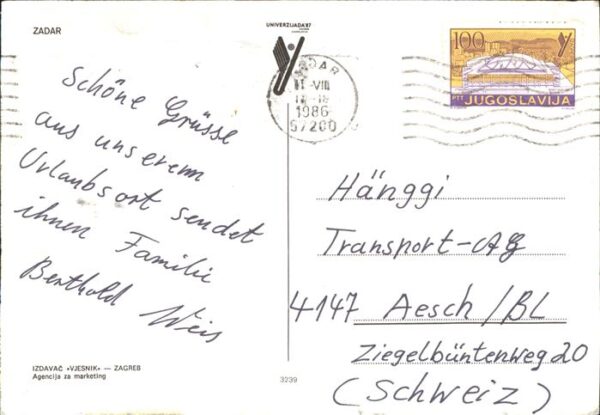 ZADAR
UNIVERZIJADA '87
100
PTT JUGOSLAVIJA
VIII
1986
57200
Schöne Grüsse
aus unserem
Urlaubsort sendet
ihnen Familie
Berthold Weis
Hänggi
Transport-AG
4147 Aesch /BL
Ziegelbüntenweg 20
(Schweiz)
IZDAVAČ «VJESNIK» — ZAGREB
Agencija za marketing
3239